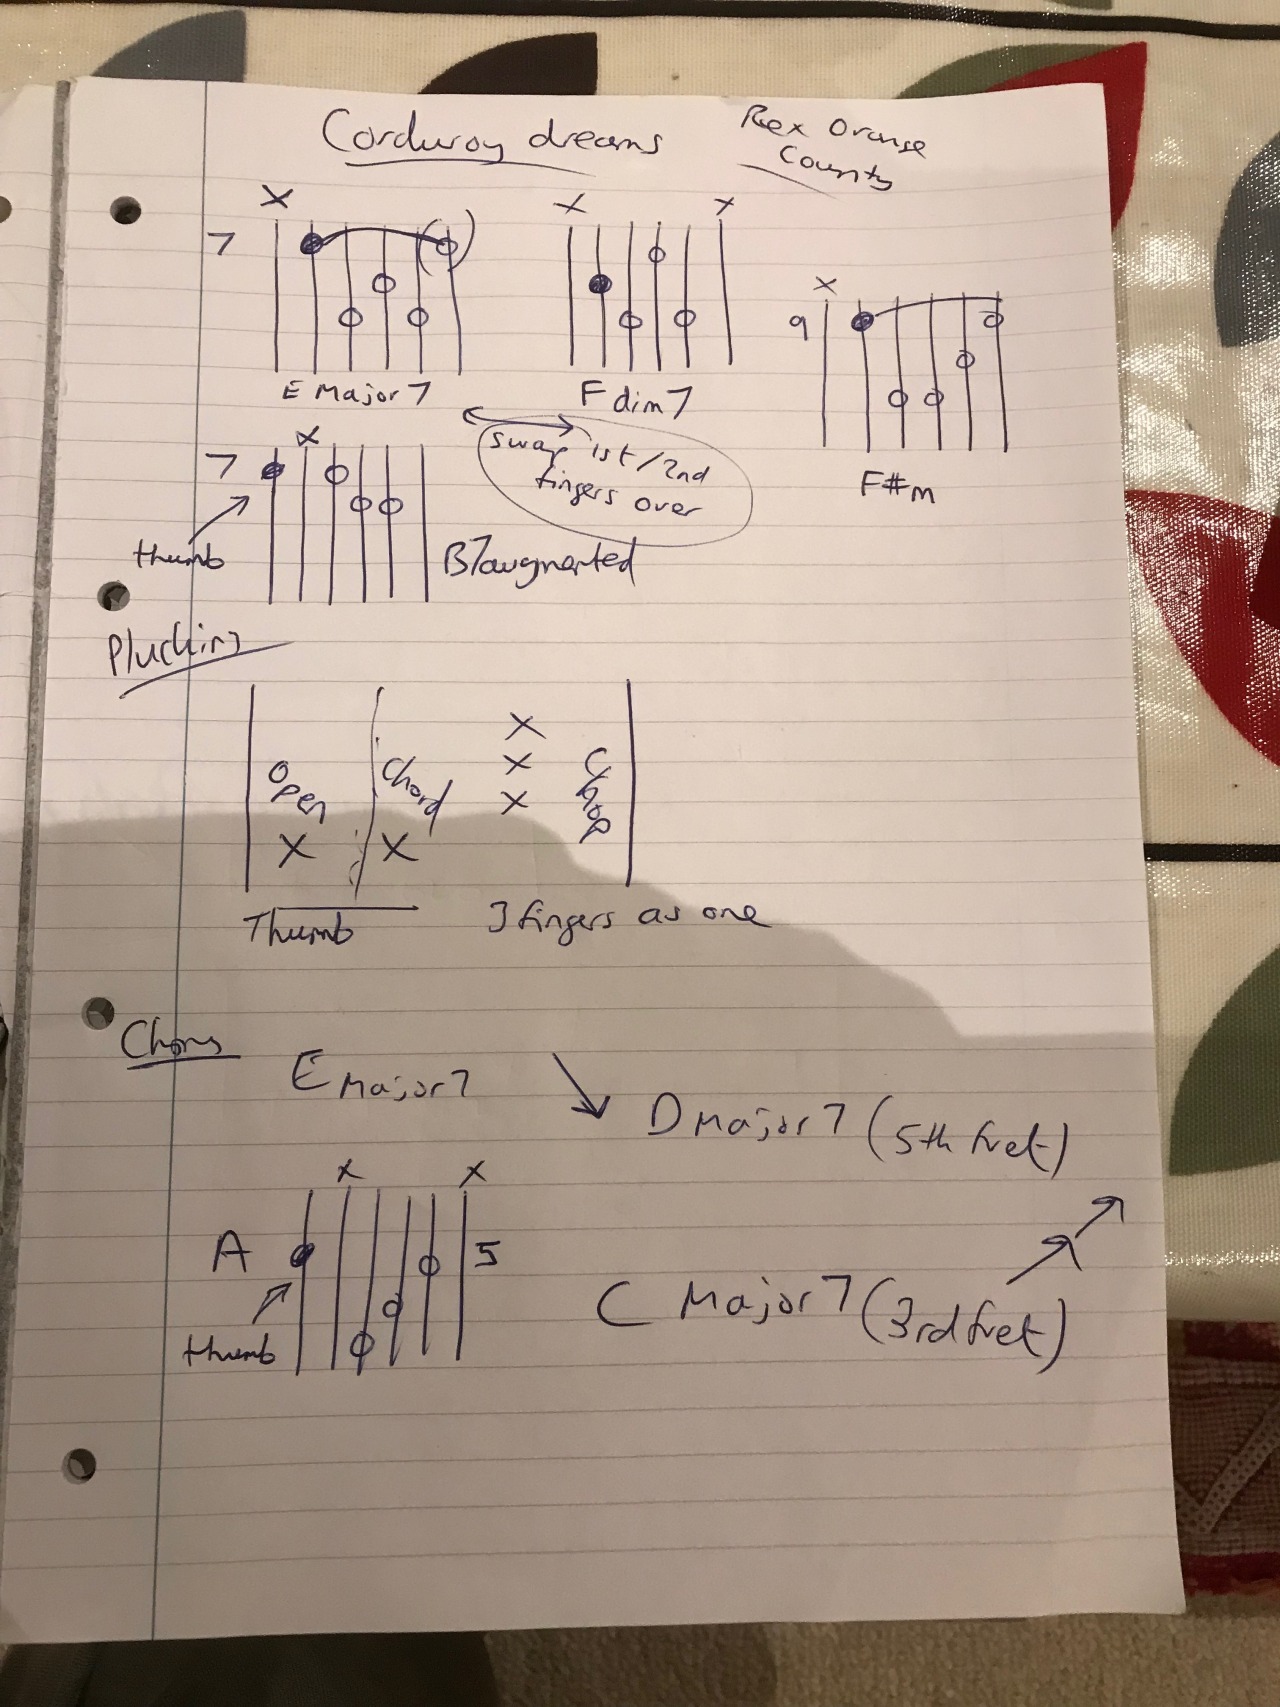 Corduroy dreams
Rex Orange
County
X
X X
X
7
9
E Major 7
F dim 7
F#m
swap 1st/2nd
fingers over
X
7
thumb
B7augmented
Plucking
Open
Chord
X
X
X
Chop
X X
Thumb
3 fingers as one
E Major 7
D Major 7 (5th fret)
X X
A
5
thumb
C Major 7 (3rd fret)